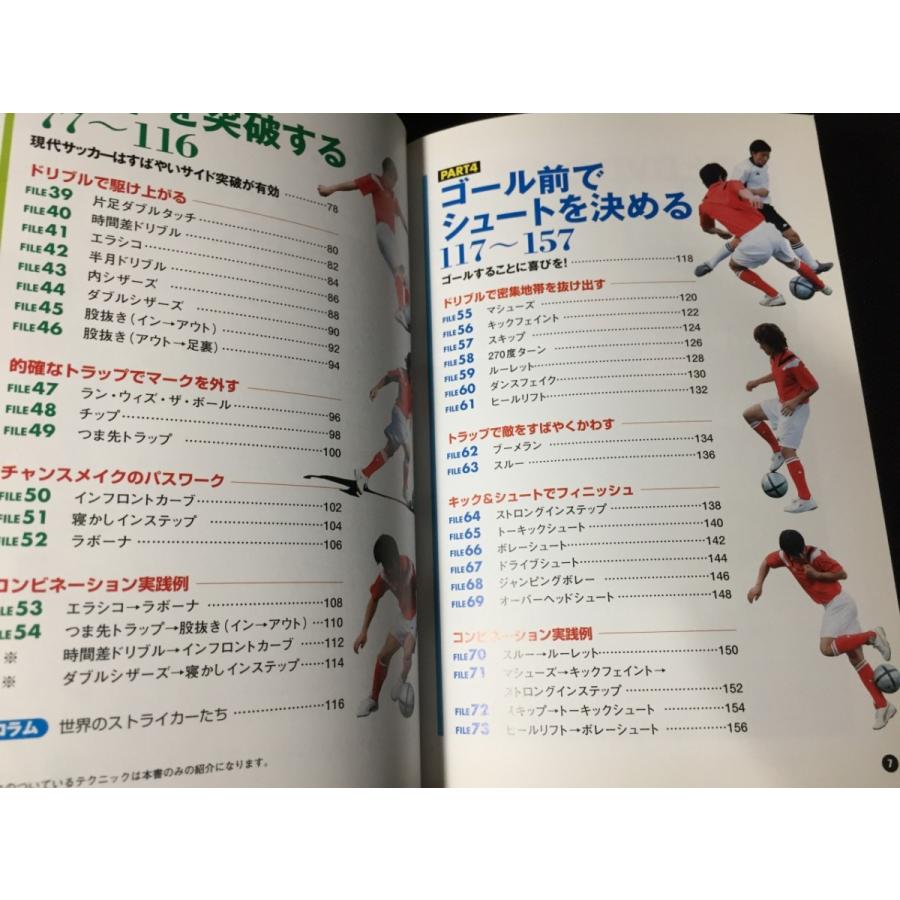 を突破する
77〜116
現代サッカーはすばやいサイド突破が有効 ……… 78
ドリブルで駆け上がる
FILE39 片足ダブルタッチ ……… 80
FILE40 時間差ドリブル ……… 82
FILE41 エラシコ ……… 84
FILE42 半月ドリブル ……… 86
FILE43 内シザーズ ……… 88
FILE44 ダブルシザーズ ……… 90
FILE45 股抜き(イン→アウト) ……… 92
FILE46 股抜き(アウト→足裏) ……… 94
的確なトラップでマークを外す
FILE47 ラン・ウィズ・ザ・ボール ……… 96
FILE48 チップ ……… 98
FILE49 つま先トラップ ……… 100
チャンスメイクのパスワーク
FILE50 インフロントカーブ ……… 102
FILE51 寝かしインステップ ……… 104
FILE52 ラボーナ ……… 106
コンビネーション実践例
FILE53 エラシコ→ラボーナ ……… 108
FILE54 つま先トラップ→股抜き(イン→アウト) … 110
※ 時間差ドリブル→インフロントカーブ ……… 112
※ ダブルシザーズ→寝かしインステップ ……… 114
コラム 世界のストライカーたち ……… 116
のついているテクニックは本書のみの紹介になります。
PART4
ゴール前で
シュートを決める
117〜157
ゴールすることに喜びを! ……… 118
ドリブルで密集地帯を抜け出す
FILE55 マシューズ ……… 120
FILE56 キックフェイント ……… 122
FILE57 スキップ ……… 124
FILE58 270度ターン ……… 126
FILE59 ルーレット ……… 128
FILE60 ダンスフェイク ……… 130
FILE61 ヒールリフト ……… 132
トラップで敵をすばやくかわす
FILE62 ブーメラン ……… 134
FILE63 スルー ……… 136
キック&シュートでフィニッシュ
FILE64 ストロングインステップ ……… 138
FILE65 トーキックシュート ……… 140
FILE66 ボレーシュート ……… 142
FILE67 ドライブシュート ……… 144
FILE68 ジャンピングボレー ……… 146
FILE69 オーバーヘッドシュート ……… 148
コンビネーション実践例
FILE70 スルー→ルーレット ……… 150
FILE71 マシューズ→キックフェイント→
ストロングインステップ ……… 152
FILE72 スキップ→トーキックシュート ……… 154
FILE73 ヒールリフト→ボレーシュート ……… 156
7